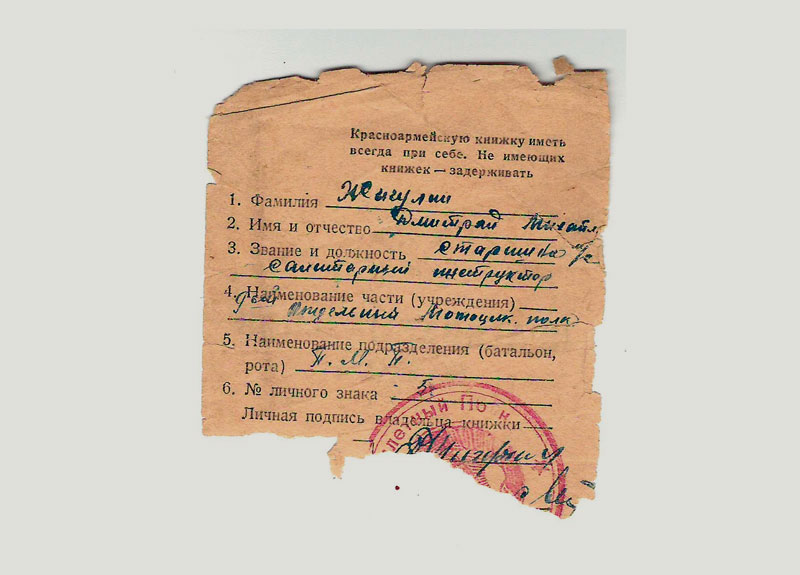 Красноармейскую книжку иметь
всегда при себе. Не имеющих
книжек — задерживать
1. Фамилия Жигулин
2. Имя и отчество Дмитрий Михайл
3. Звание и должность Старшина
Санитарный инструктор
4. Наименование части (учреждения)
Отдельный Мотоцик. полк
5. Наименование подразделения (батальон,
рота) П. М. П.
6. № личного знака 5.
Личная подпись владельца книжки